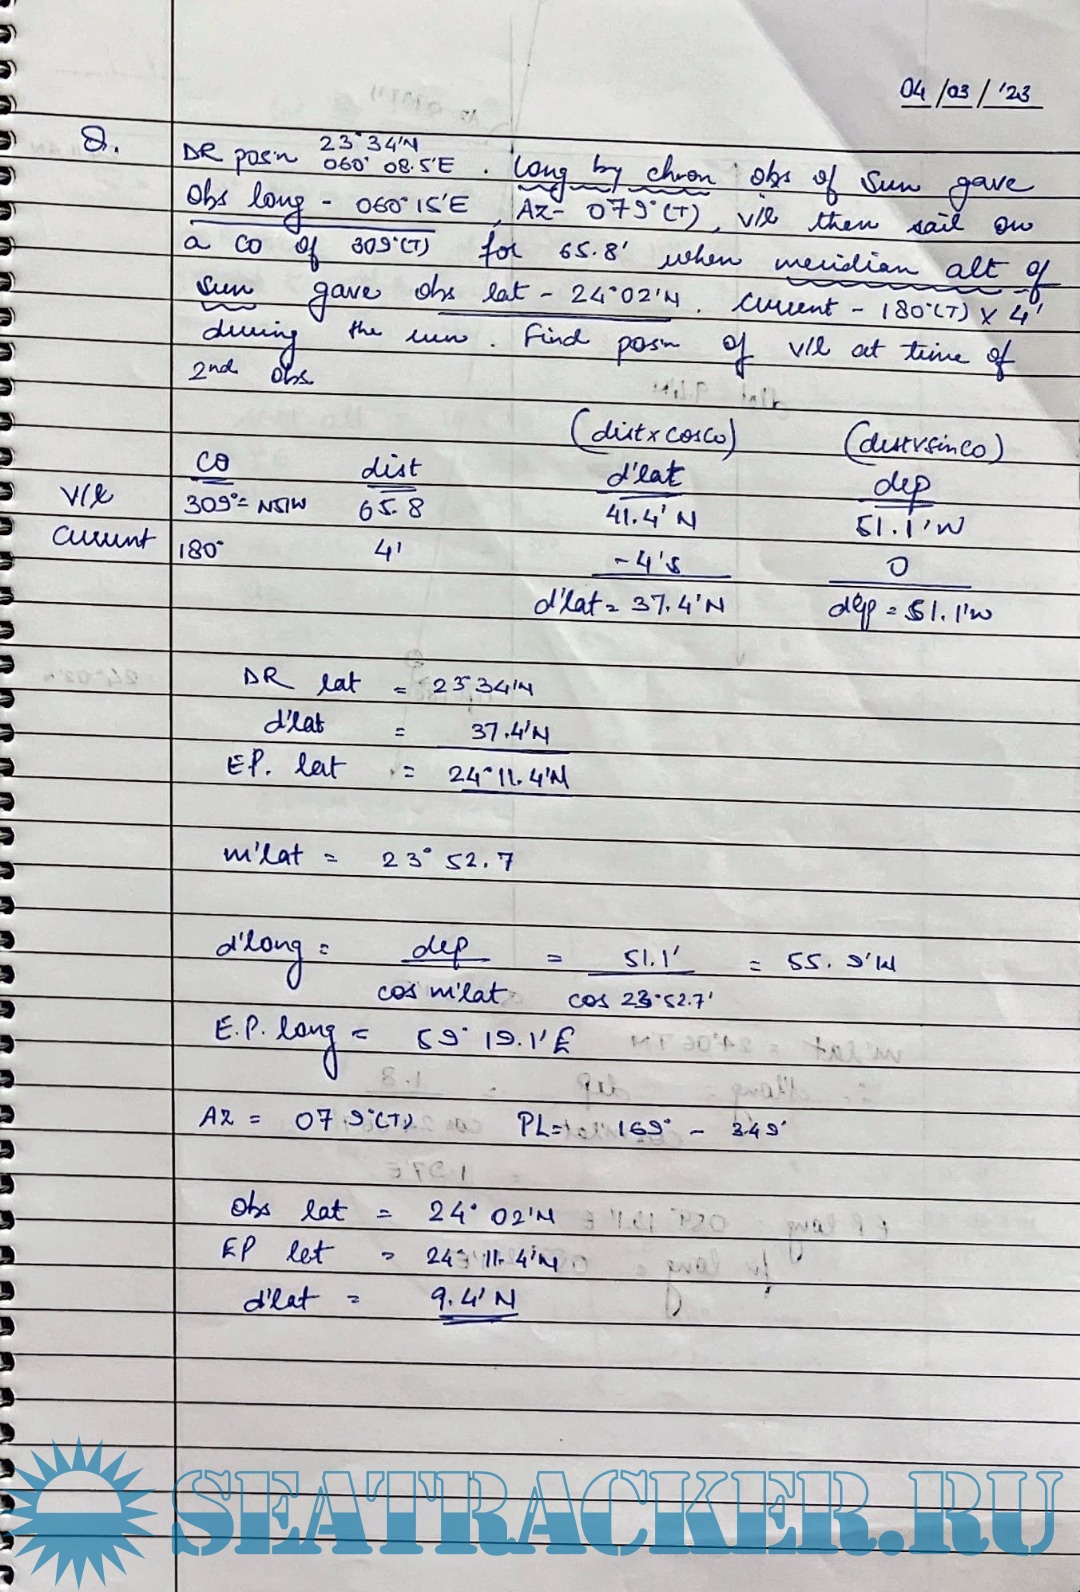 04/03/'23
Q. DR pos'n 23° 34'N
060° 08.5'E . Long by chron obs of Sun gave
Obs long - 060° 15'E , Az - 079°(T) , v/l then sail on
a co of 309°(T) for 65.8' when meridian alt of
Sun gave obs lat - 24°02'N . Current - 180°(T) x 4'
during the run . Find pos'n of v/l at time of
2nd obs
(dist x cos co) (dist x sin co)
co dist d'lat dep
V/l 309° = N51W 65.8 41.4' N 51.1' W
Current 180° 4' - 4's 0
d'lat = 37.4' N dep = 51.1'W
DR lat = 23°34'N
d'lat = 37.4'N
EP. lat = 24°11.4'N
m'lat = 23° 52.7
d'long = dep = 51.1' = 55.9'W
cos m'lat cos 23°52.7'
E.P. long = 59° 19.1'E
Az = 079°(T) PL = 169° - 349°
Obs lat = 24° 02'N
EP let = 24° 11.4'N
d'lat = 9.4' N
SEATRACKER.RU